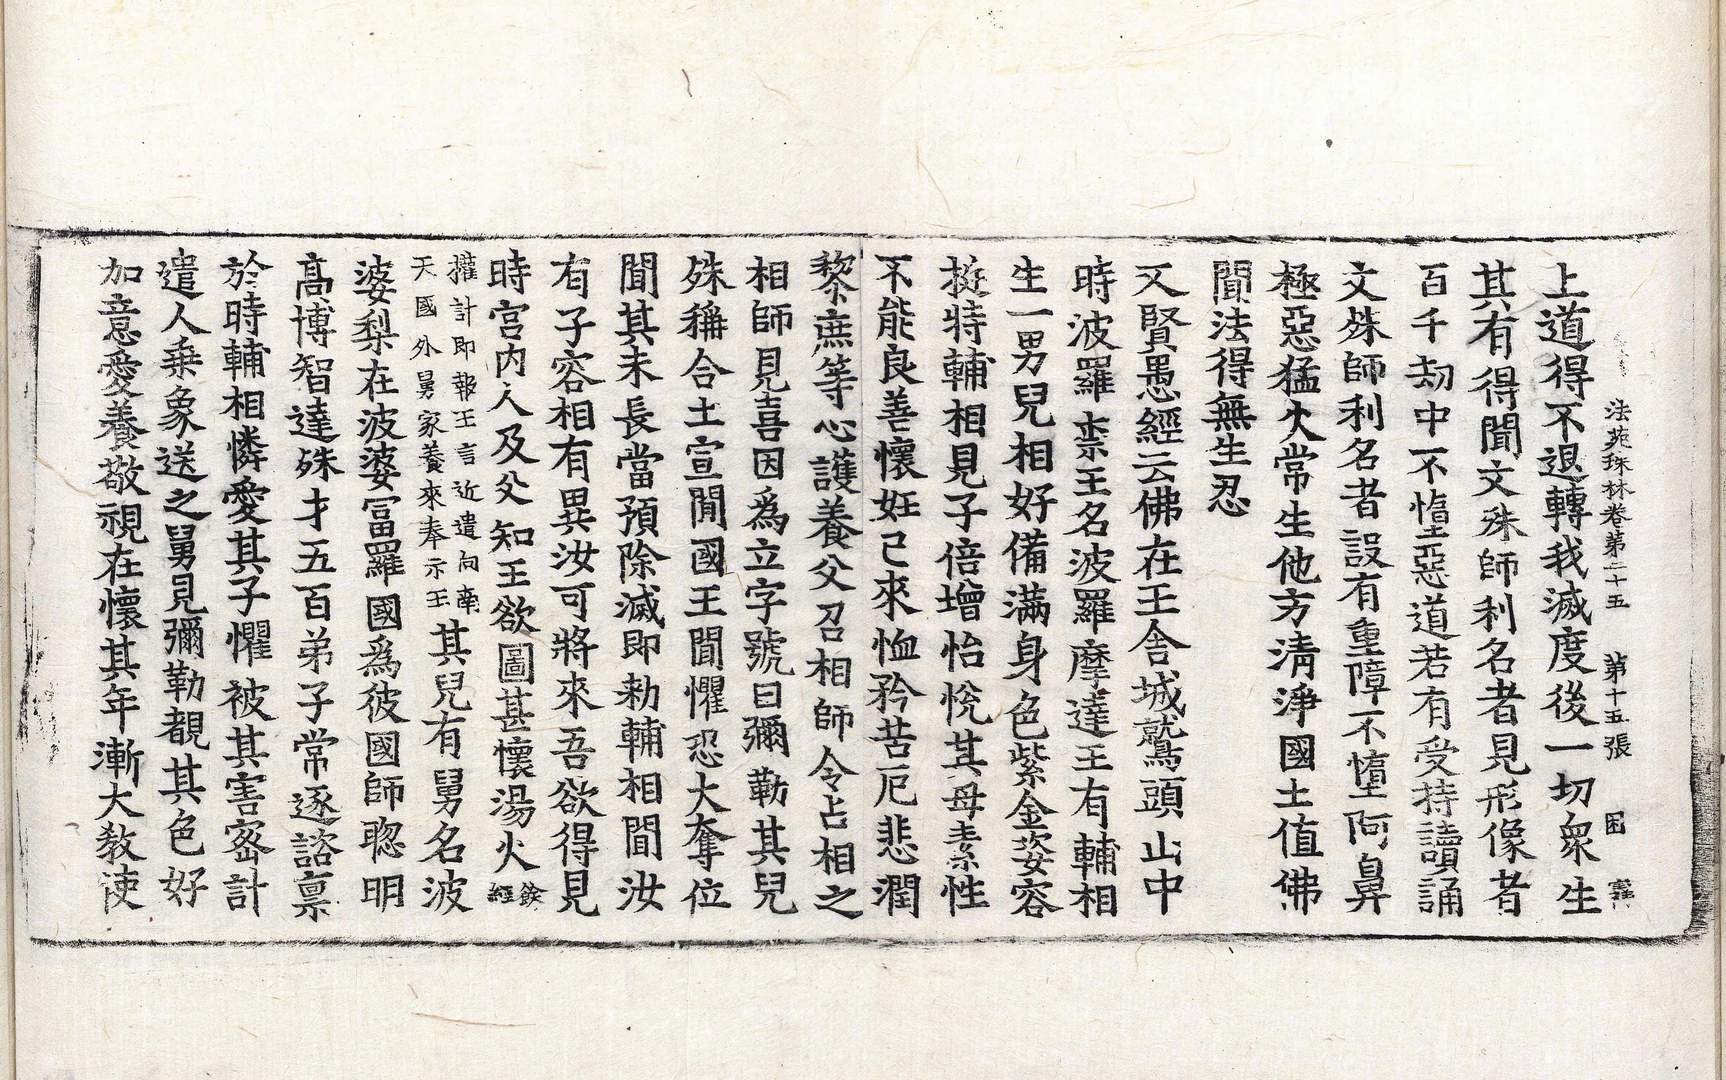 法苑珠林卷第二十五　第十五張　困
上道得不退轉我滅度後一切衆生
其有得聞文殊師利名者見形像者
百千劫中不墮惡道若有受持讀誦
文殊師利名者設有重障不墮阿鼻
極惡猛火常生他方淸淨國土值佛
聞法得無生忍
又賢愚經云佛在王舍城鷲頭山中
時波羅㮏王名波羅摩達王有輔相
生一男兒相好備滿身色紫金姿容
挺特輔相見子倍增怡悅其母素性
不能良善懷妊已來恤矜苦厄悲潤
黎庶等心護養父召相師令占相之
相師見喜因爲立字號曰彌勒其兒
殊稱合土宣聞國王聞懼恐大奪位
聞其未長當預除滅即勑輔相聞汝
有子容相有異汝可將來吾欲得見
時宮內人及父知王欲圖甚懷湯火餘經
權計即報王言近遣向南
天國外舅家養來奉示王
其兒有舅名波
婆梨在波婆富羅國爲彼國師聦明
高博智達殊才五百弟子常逐諮禀
於時輔相憐愛其子懼被其害密計
遣人乗象送之舅見彌勒覩其色好
加意愛養敬視在懷其年漸大敎使